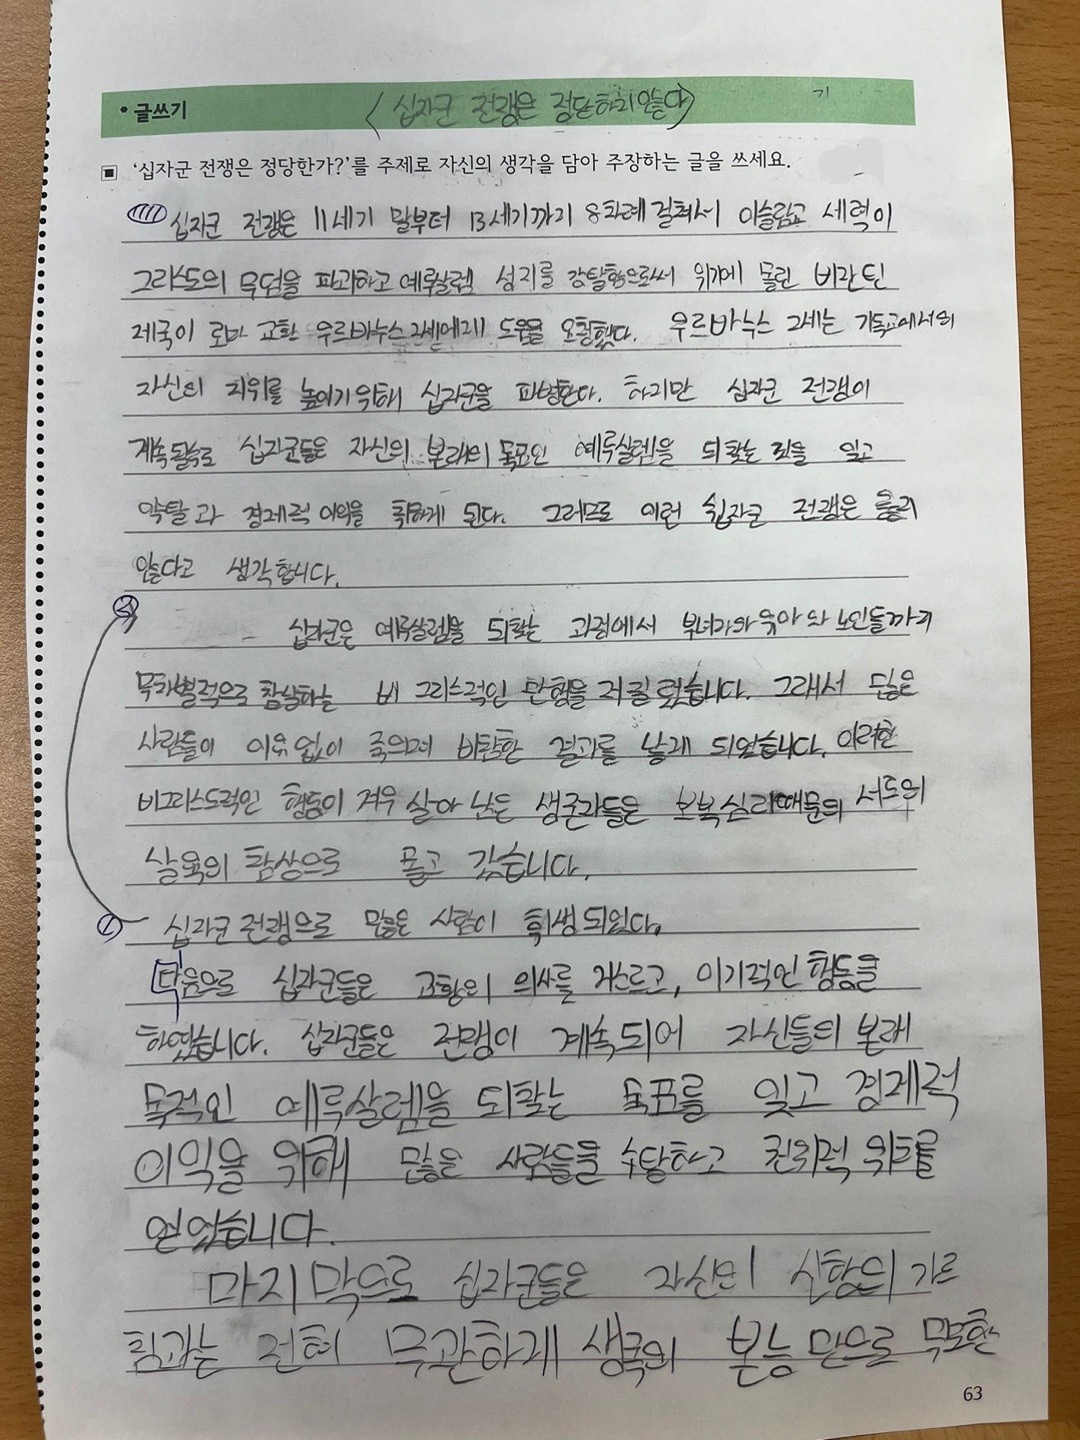 • 글쓰기 <십자군 전쟁은 정당하지 않다>
▣ '십자군 전쟁은 정당한가?'를 주제로 자신의 생각을 담아 주장하는 글을 쓰세요.
십자군 전쟁은 11세기 말부터 13세기까지 8차례 걸쳐서 이슬람교 세력이
그리스도의 무덤을 파괴하고 예루살렘 성지를 강탈함으로써 위기에 몰린 비잔틴
제국이 로마 교환 우르바누스 2세에게 도움을 요청했다. 우르바누스 2세는 기독교에서의
자신의 지위를 높이기 위해 십자군을 파병한다. 하지만 십자군 전쟁이
계속될수록 십자군들은 자신의 본래의 목표인 예루살렘을 되찾는 것을 잊고
약탈과 경제적 이익을 취하게 된다. 그러므로 이런 십자군 전쟁은 옳지
않다고 생각합니다.
② 십자군은 예루살렘을 되찾는 과정에서 부녀자와 유아와 노인들까지
무차별적으로 참살하는 비 그리스적인 만행을 저질렀습니다. 그래서 많은
사람들이 이유없이 죽으며 비참한 결과를 낳게 되었습니다. 이러한
비그리스도적인 행동이 겨우 살아 남은 생존자들은 보복심리때문의 서로의
살육의 참상으로 몰고 갔습니다.
① 십자군 전쟁으로 많은 사람이 휘생되었다.
다음으로 십자군들은 교황의 의사를 거스르고, 이기적인 행동을
하였습니다. 십자군들은 전쟁이 계속되어 자신들의 본래
목적인 예루살렘을 되찾는 목표를 잊고 경제적
이익을 위해 많은 사람들을 수탈하고 권위적 위치를
얻었습니다.
마지막으로 십자군들은 자신의 신앙의 가르
침과는 전혀 무관하게 생존의 본능 만으로 무모한
63